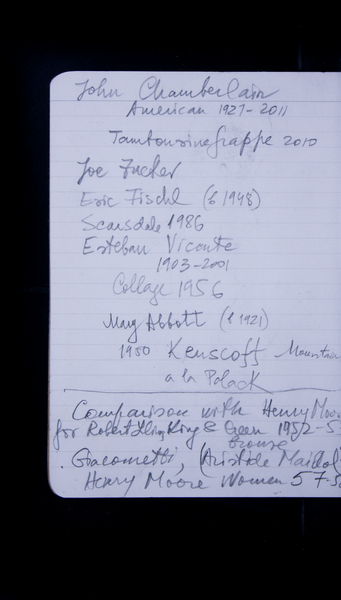 John Chamberlain
American 1927-2011
Tambourinefrappe 2010
Joe Zucker
Eric Fischl (b 1948)
Scarsdale 1986
Esteban Vicente
1903-2001
Collage 1956
Mary Abbott (b 1921)
1950 Kenscoff Mountain
a la Polack
Comparison with Henry Moore
for Robert King & Queen 1952-5
bronze
. Giacometti, (Aristide Maidol)
Henry Moore Women 57-5